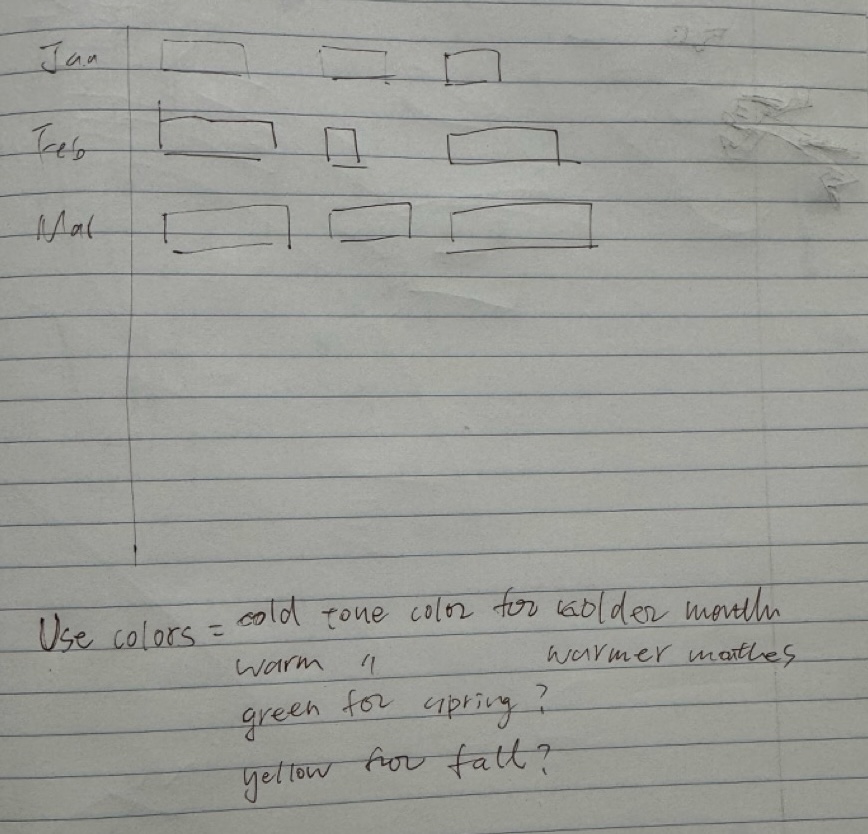 Jan
Feb
Mar
Use colors = cold tone color for colder month
warm " warmer monthes
green for spring?
yellow for fall?